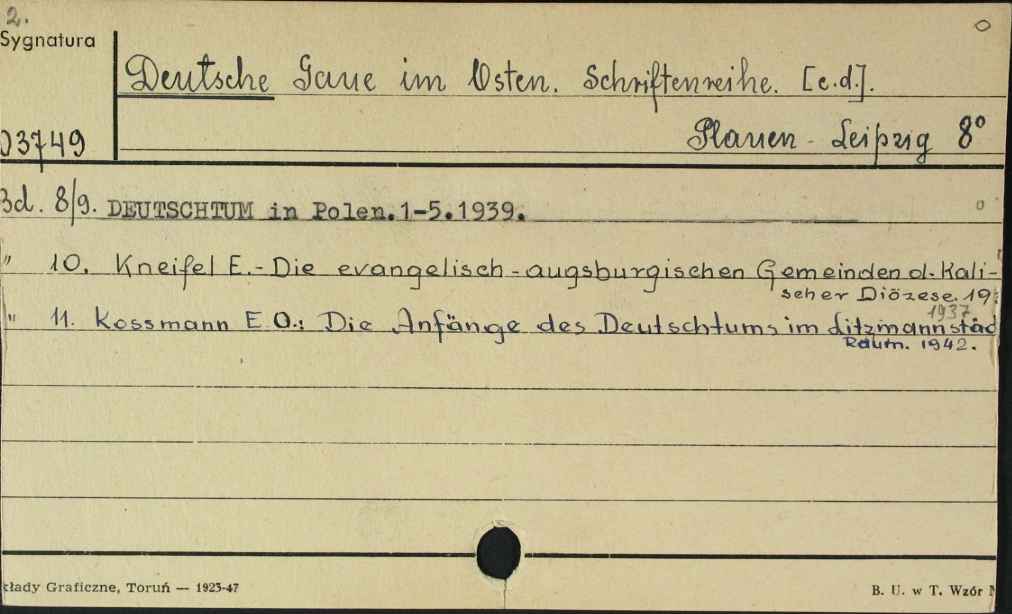 2.
Sygnatura
Deutsche Gaue im Osten. Schriftenreihe. [c.d.].
03749
Plauen - Leipzig 8°
Bd. 8/9. DEUTSCHTUM in Polen.1-5.1939.
" 10. Kneifel E.- Die evangelisch-augsburgischen Gemeinden d. Kali-
scher Diözese. 19
1937.
" 11. Kossmann E.O.: Die Anfänge des Deutschtums im Litzmannstäd
Raum. 1942.
kłady Graficzne, Toruń — 1923-47
B. U. w T. Wzór N